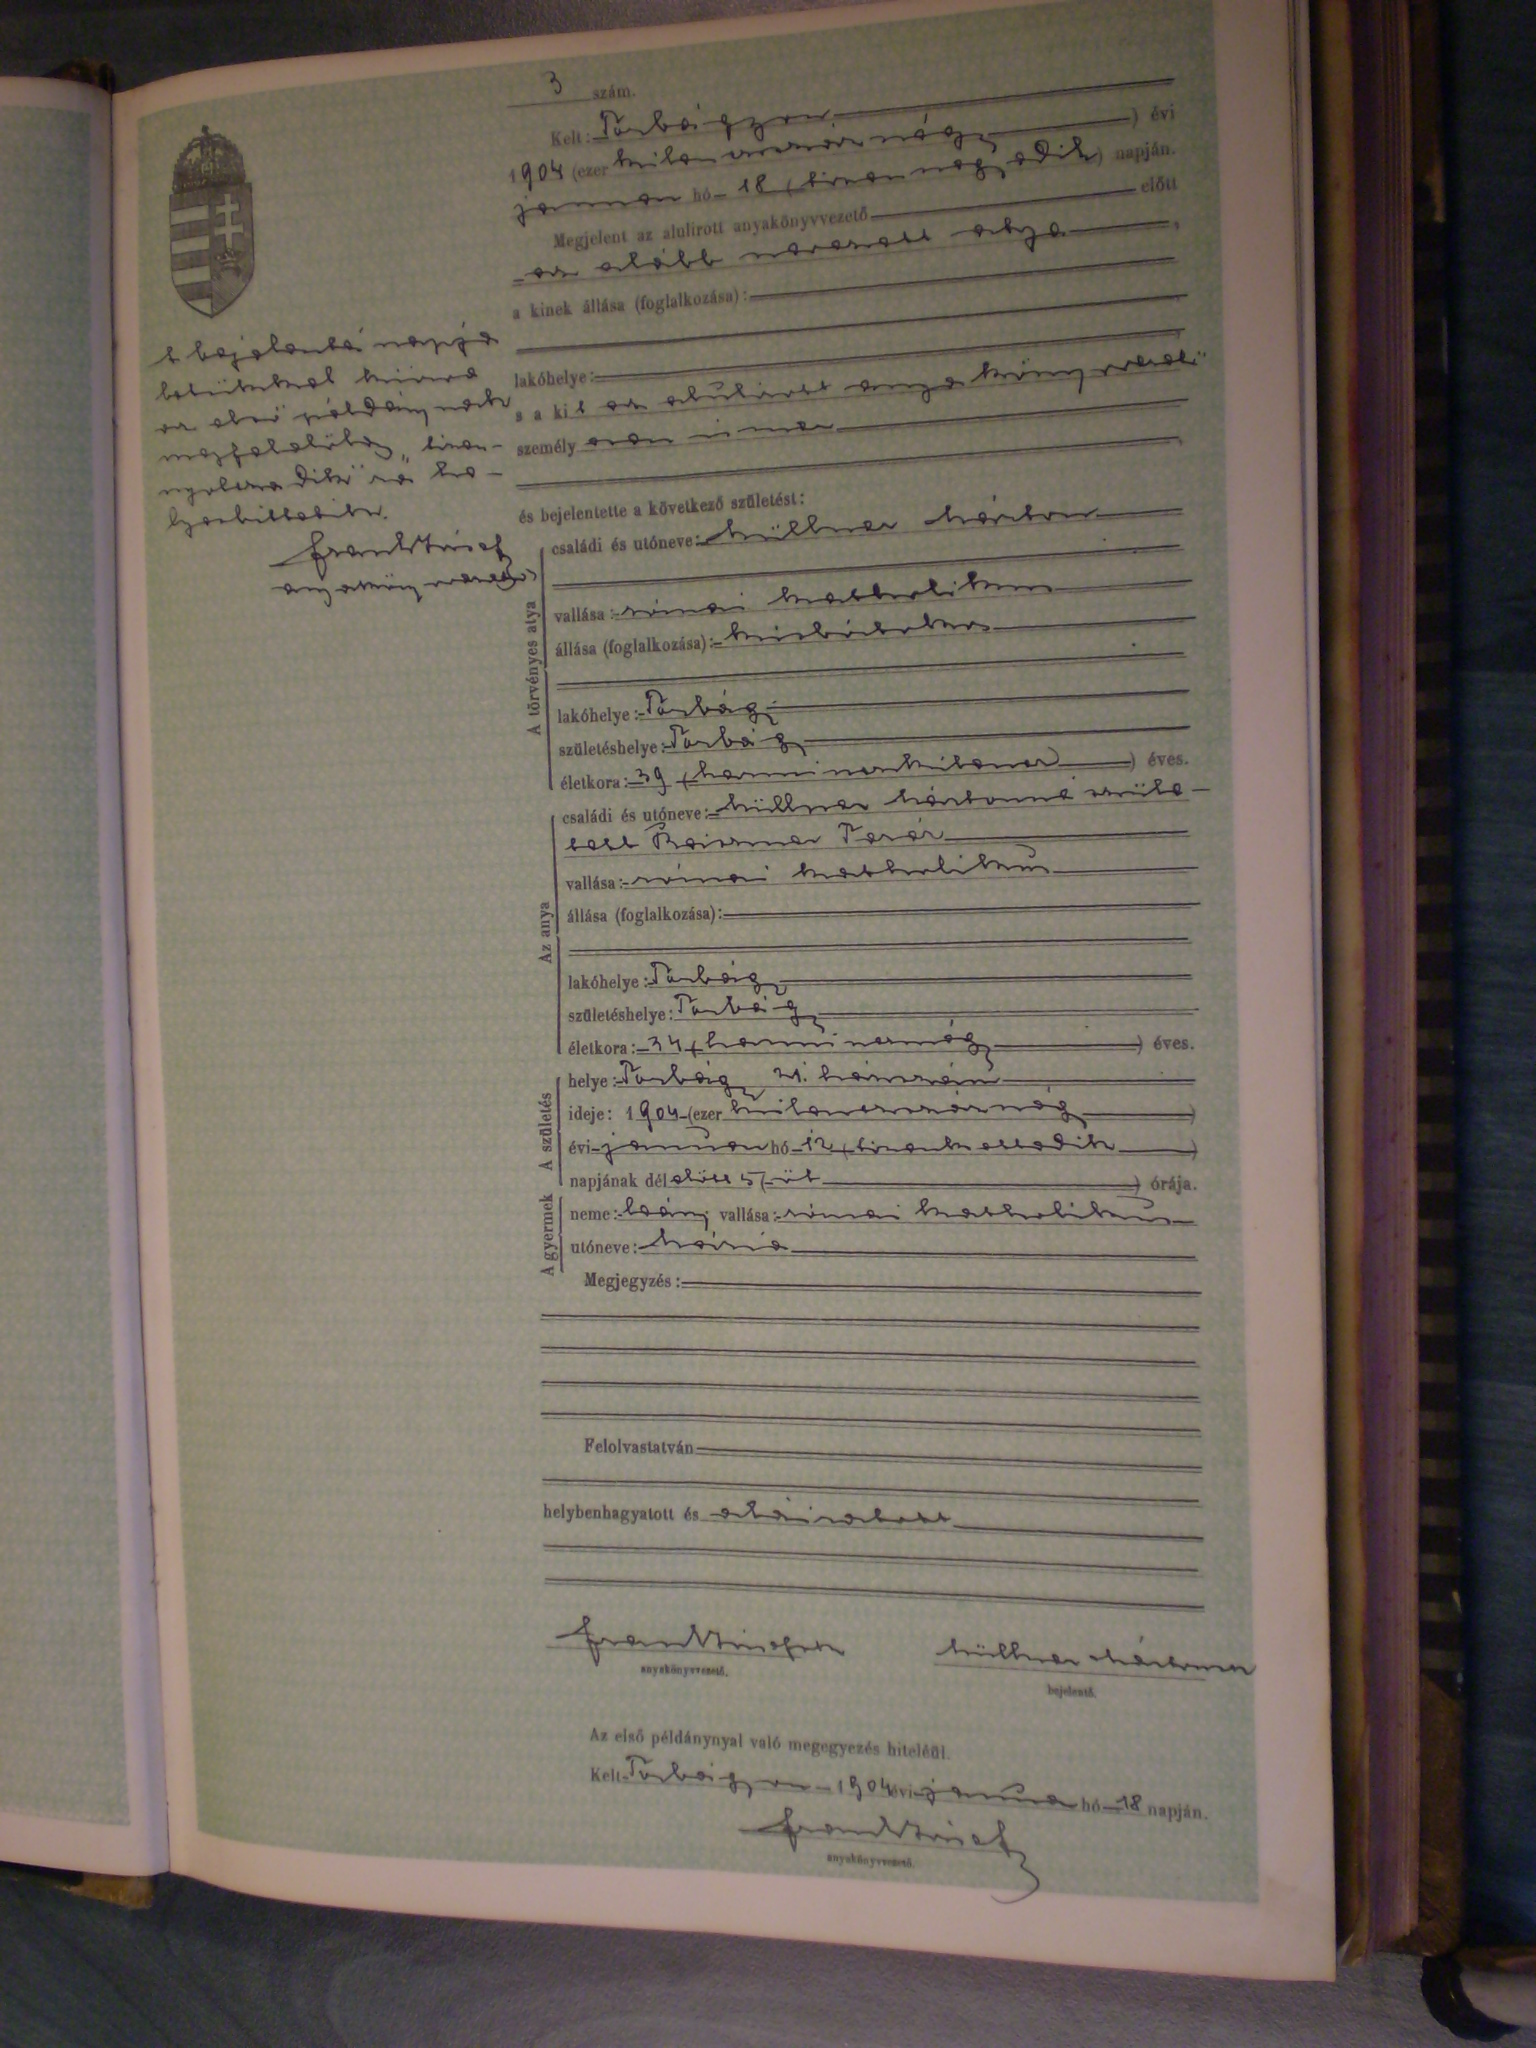 3 szám.
Kelt: Torbágyon
) évi
1904 (ezer kilenczszáznégy
január hó 18 (tizennegyedik) napján.
Megjelent az alulirott anyakönyvvezető előtt
az alább nevezett atya ,
a kinek állása (foglalkozása):
lakóhelye:
s a kit az alulirott anyakönyvvezető
személyesen ismer
és bejelentette a következő születést:
A bejelentés napja
betükkel kiirva
az első példánynak
megfelelőleg "tizen-
nyolczadik"ra he-
lyesbittetik.
anyakönyvvezető
A törvényes atya
családi és utóneve: Müllner Márton
vallása: római katholikus
állása (foglalkozása): kisbirtokos
lakóhelye: Torbágy
születéshelye: Torbágy
életkora: 39 (harminczkilencz) éves.
Az anya
családi és utóneve: Müllner Mártonné szüle-
tett Teréz
vallása: római katholikus
állása (foglalkozása):
lakóhelye: Torbágy
születéshelye: Torbágy
életkora: 34 (harmincznégy) éves.
A születés
helye: Torbágy 21. házszám
ideje: 1904 (ezer kilenczszáznégy )
évi január hó 12 (tizenkettedik )
napjának délelőtt 5 (öt ) órája.
A gyermek
neme: leány vallása: római katholikus
utóneve: Mária
Megjegyzés:
Felolvastatván
helybenhagyatott és aláiratott
anyakönyvvezető.
Müllner Márton
bejelentő.
Az első példánynyal való megegyezés hiteléül.
Kelt Torbágyon 1904 évi január hó 18 napján.
anyakönyvvezető.